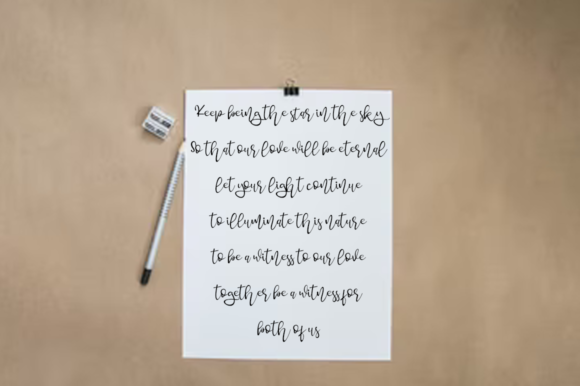 Keep being the star in the sky
So that our love will be eternal
let your light continue
to illuminate this nature
to be a witness to our love
together be a witness for
both of us